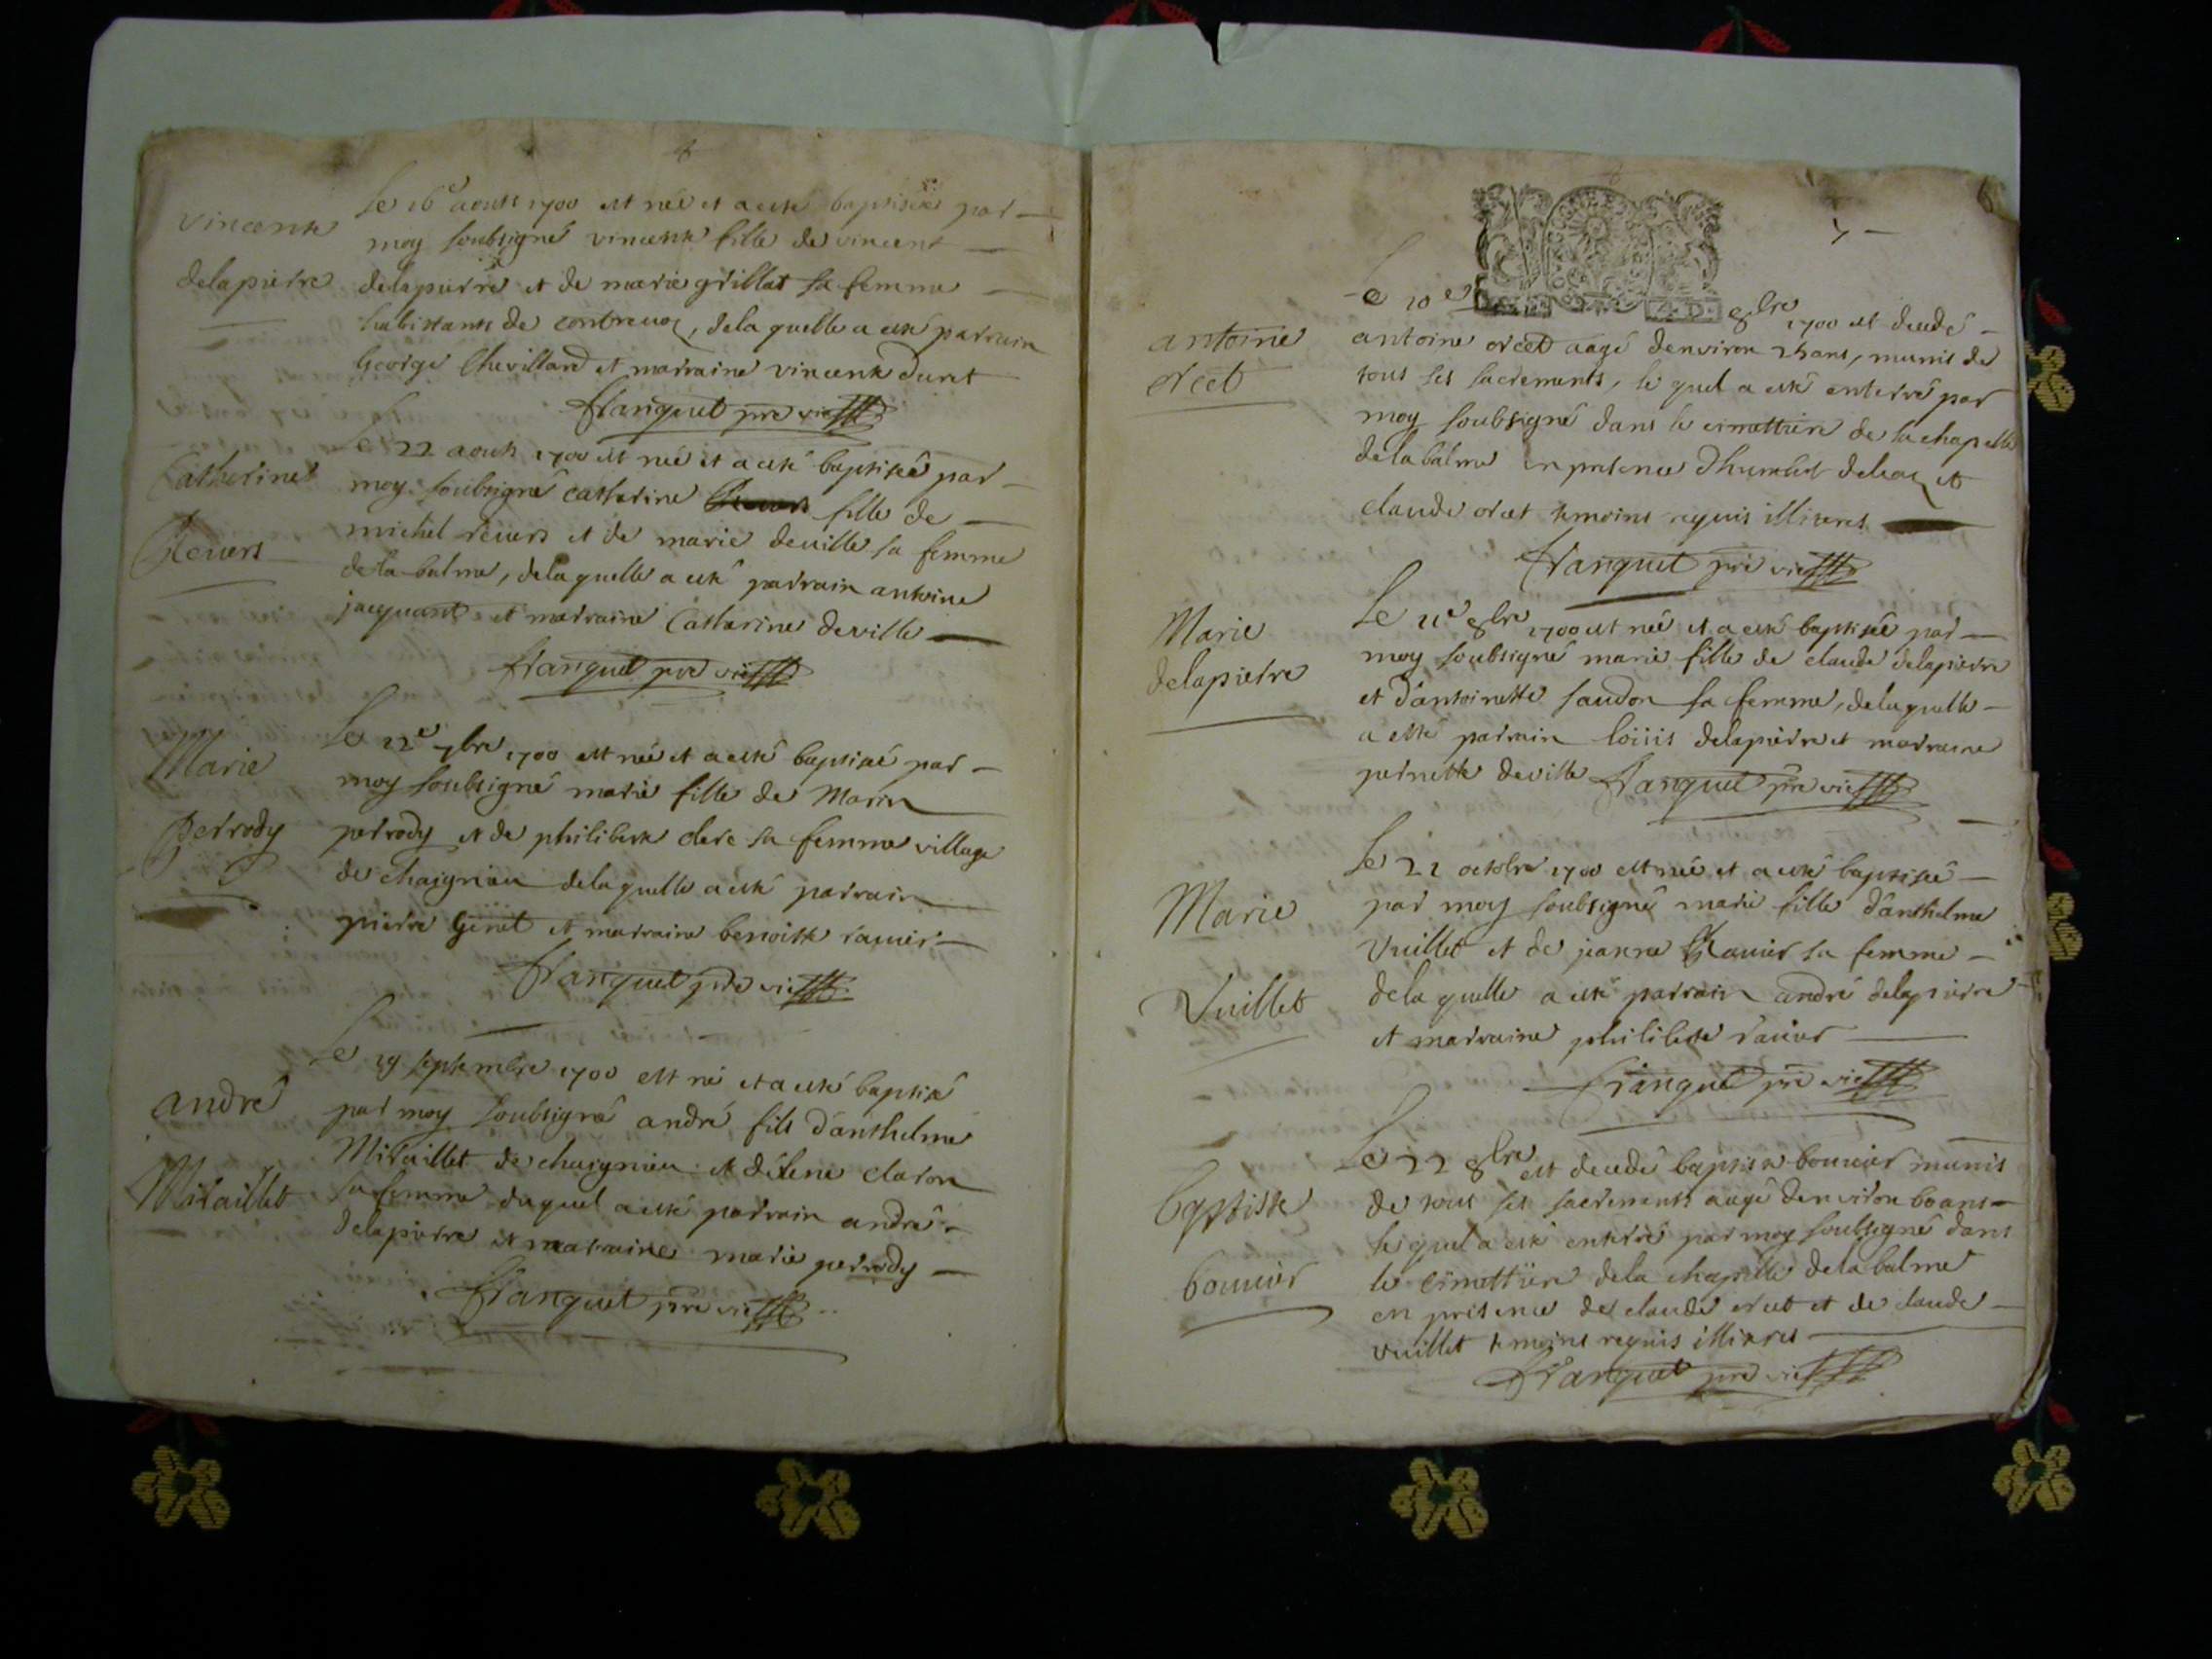 vincente
delapierre
Le 16e aoust 1700 est née et a esté baptisée par
moy soubsigné vincente fille de vincent
delapierre et de marie grillat sa femme
habistants de contrevoz, dela quelle a esté parrain
George Chevillard et marraine vincente Duret
franquet pre vic
Catherine
Revers
Le 22 aoust 1700 est née et a esté baptisée par
moy soubsigné catherine fille de
michel revers et de marie deville sa femme
de la balme, dela quelle a esté parrain antoine
jacquant et marraine Catherine deville
franquet pre vic
Marie
Perrody
Le 12e 7bre 1700 est née et a esté baptisée par
moy soubsigné marie fille de Marin
perrody et de philiberte clere sa femme village
de Chaignieu dela quelle a esté parrain
pierre Ginet et marraine benoiste ravier
franquet pre vic
andré
Miraillet
Le 19 septembre 1700 est né et a esté baptisé
par moy soubsigné andré fils d'anthelme
Miraillet de chaignieu et d'élene claron
sa femme duquel a esté parrain andré
Delapierre et marraine marie perrody
franquet pre vic
antoine
orcet
Le 10e 8bre 1700 est decedé
antoine orcet aagé denviron 25 ans, munis de
tous ses sacrements, le quel a esté enterré par
moy soubsigné dans le cimettiere de la chapelle
dela balme en presence d'humbert deleaz et
claude orcet temoins requis illiteres
franquet pre vic
Marie
delapierre
Le 11e 8bre 1700 est née et a esté baptisée par
moy soubsigné marie fille de claude delapierre
et d'antoinette saudon sa femme, dela quelle
a esté parrain loüis delapierre et marraine
pernette deville franquet pre vic
Marie
Vuillet
Le 21 octobre 1700 est née et a esté baptisée
par moy soubsigné marie fille d'anthelme
Vuillet et de jeanne Ravier sa femme
dela quelle a esté parrain andré delapierre
et marraine philiberte ravier
franquet pre vic
baptiste
bouvier
Le 22 8bre est decedé baptiste bouvier munis
de tous ses sacrements aagé denviron 60 ans
lequel a esté enterré par moy soubsigné dans
le cimettiere dela chapelle dela balme
en presence de claude orcet et de claude
vuillet temoins requis illiteres
franquet pre vic